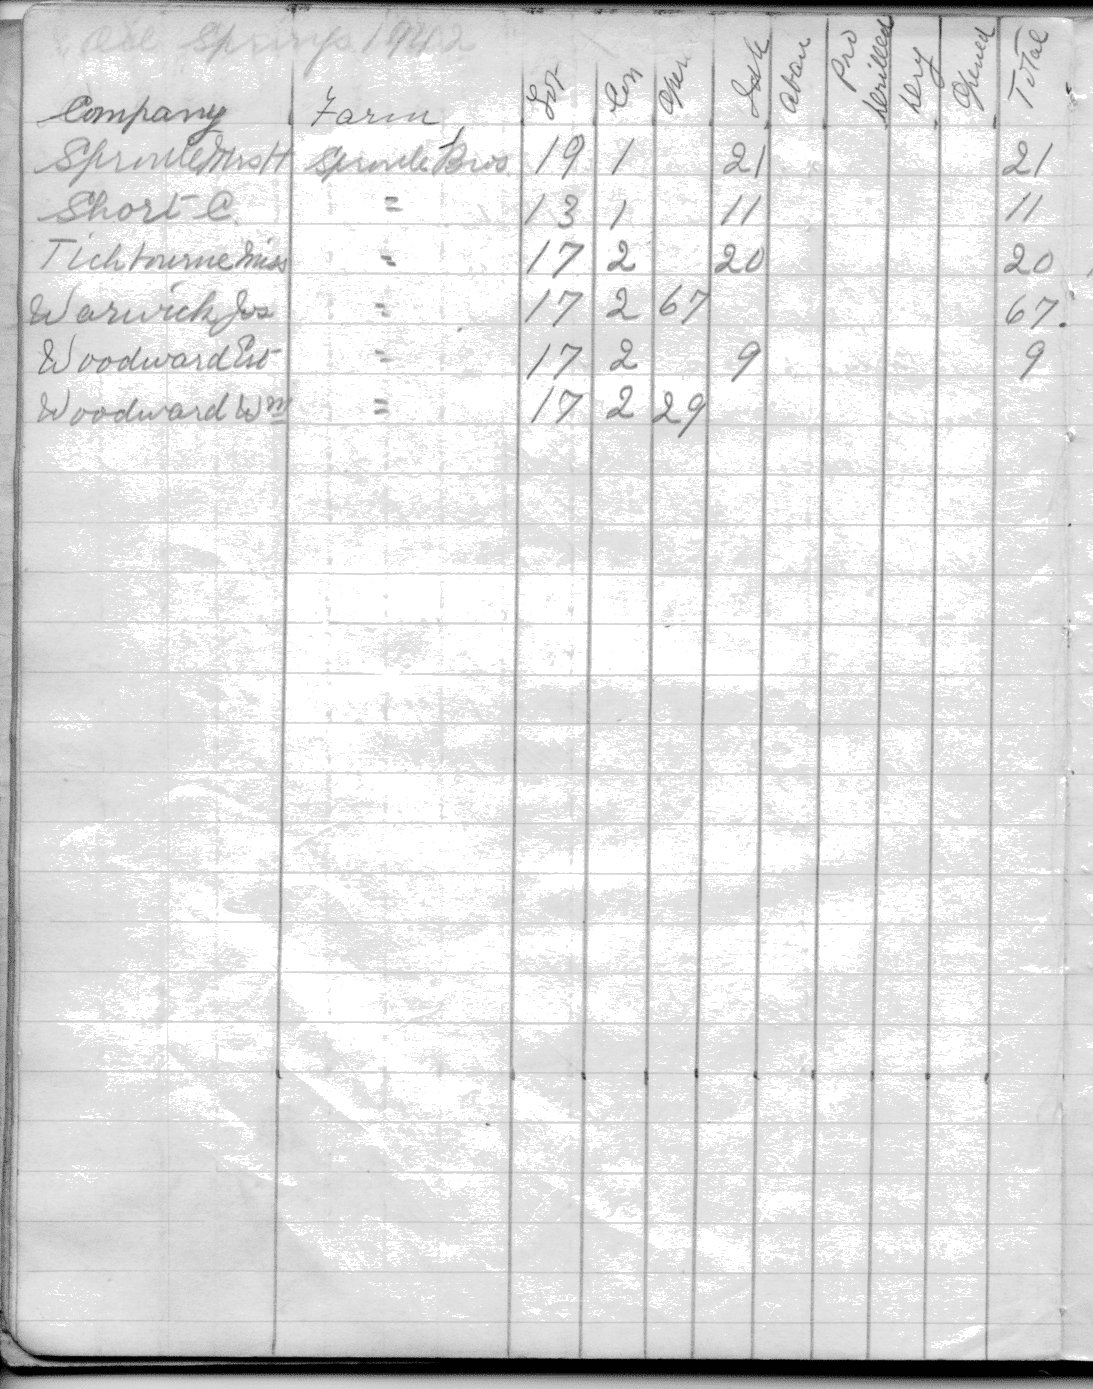 Oil Springs 1942
Company Farm Lot Con Oper. Idle Aban Pro Drilled Dry Opened Total
Sproule Mrs H Sproule Bros. 19 1 21 21
Short C = 13 1 11 11
Tichbourne Miss = 17 2 20 20
Warwick Jos = 17 2 67 67.
Woodward Est = 17 2 9 9
Woodward Wm = 17 2 29